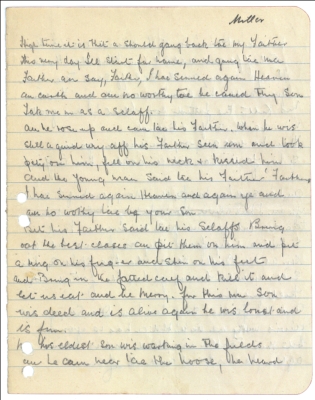 Miller
time it is that a should gang back tae my Father
this very day I'll start for hame, and gang tae mer
Father an say, Father, I has sinned again Heaven
an earth and am no worthy tae be caned Thy Son
Tak me on as a
an he rose up and cam tae his Father. When he wis
still a guid way aff his Father seen him and took
pity on him, fell on his neck & kissed him
And the young man said tae his Father "Father
I has sinned again Heaven and again ye and
am no worthy tae be your Son
But his Father said tae his Bring
oot the best claes an pit them on him and pit
a ring on his finger and shin on his feet
and Bring in the fatted calf and kill it and
let us eat and be merry. for this ma Son
wis deed and is alive again he wis lost and
is fun.
his eldest son wis working in the fields
an he cam near tae the hoose, he heard